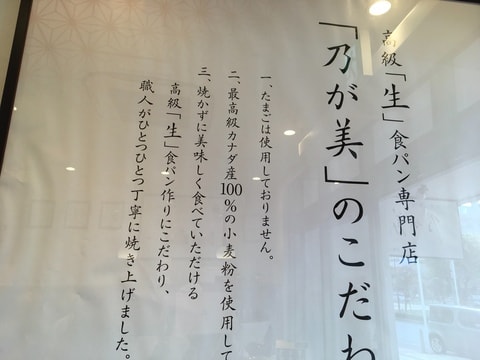 高級「生」食パン専門店
「乃が美」のこだわ
一、たまごは使用しておりません。
二、最高級カナダ産100%の小麦粉を使用して
三、焼かずに美味しく食べていただける
高級「生」食パン作りにこだわり、
職人がひとつひとつ丁寧に焼き上げました。